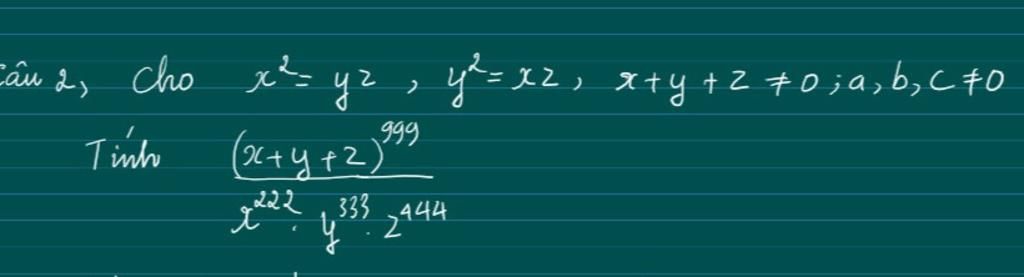 Câu 2, Cho x² = yz, y² = xz, x+y+z ≠ 0; a, b, c ≠ 0
Tính (x+y+z)⁹⁹⁹
x²²² . y³³³ . z⁴⁴⁴